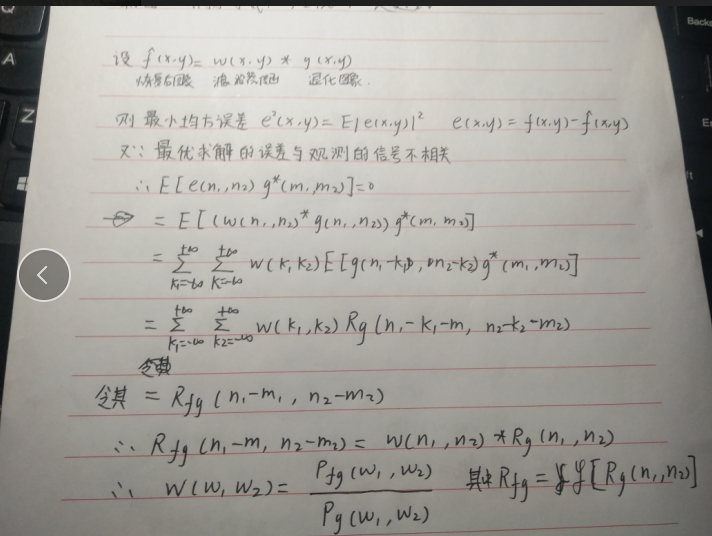 设 f̂(x,y)= w(x,y) * g(x,y)
恢复后图像 滤波模图 退化图像.
则 最小均方误差 e²(x,y)= E|e(x,y)|² e(x,y)= f(x,y)-f̂(x,y)
又∵ 最优求解的误差与观测的信号不相关
∴ E[e(n₁,n₂) g*(m₁,m₂)]=0
= E[(w(n₁,n₂)*g(n₁,n₂)) g*(m₁ m₂)]
= Σ_{k₁=-∞}^{+∞} Σ_{k=-∞}^{+∞} w(k₁,k₂)E[g(n₁-k₁, n₂-k₂)g*(m₁,m₂)]
= Σ_{k₁=-∞}^{+∞} Σ_{k2=-∞}^{+∞} w(k₁,k₂) Rg(n₁-k₁-m, n₂-k₂-m₂)
令其 = Rfg(n₁-m₁, n₂-m₂)
∴ Rfg(n₁-m, n₂-m₂)= w(n₁,n₂)*Rg(n₁,n₂)
∴ W(w₁ w₂)= Pfg(w₁,w₂) / Pg(w₁,w₂) 其中 Rfg = ℱ[Rg(n₁,n₂]